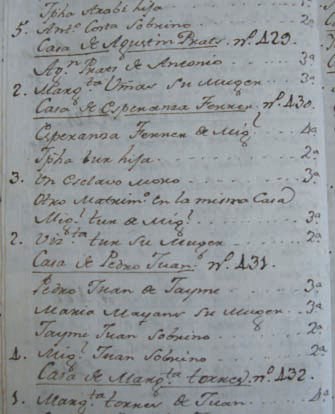 Jpha Arabí hija . . . . . . 1ª
5. Antº Costa Sobrino . . . . . 2ª
Casa de Agustin Prats. nº. 429.
Agⁿ Prats de Antonio . . . . 3ª
2. Margᵗᵃ Viñas Su Muger . . . 3ª
Casa de Esperanza Ferrer. nº. 430.
Esperanza Ferrer de Migˡ . . . 4ª
Jpha tur hija . . . . . . . 2ª
3. Un Esclavo Moro . . . . . 3ª
Otro Matrimº. en la misma Casa
Migˡ tur de Migˡ . . . . . 3ª
2. tur Su Muger . . . . . 2ª
Casa de Pedro Juan. nº. 431.
Pedro Juan de Jayme . . . 3ª
Maria Mayans Su Muger . . 3ª
Jayme Juan Sobrino . . . . 2ª
4. Migˡ Juan Sobrino . . . . 2ª
Casa de Margᵗᵃ torres. nº. 432.
1. Margᵗᵃ torres de Juan . . . 4ª